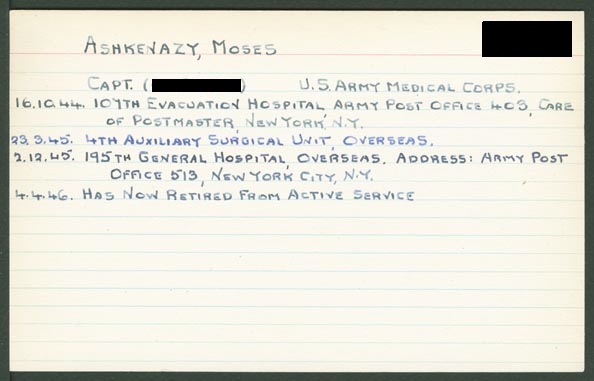 ASHKENAZY, MOSES
CAPT. ( ) U.S. ARMY MEDICAL CORPS.
16.10.44. 107TH EVACUATION HOSPITAL ARMY POST OFFICE 403, CARE
OF POSTMASTER, NEW YORK, N.Y.
23.3.45. 4TH AUXILIARY SURGICAL UNIT, OVERSEAS.
2.12.45. 195TH GENERAL HOSPITAL, OVERSEAS. ADDRESS: ARMY POST
OFFICE 513, NEW YORK CITY, N.Y.
4.4.46. HAS NOW RETIRED FROM ACTIVE SERVICE